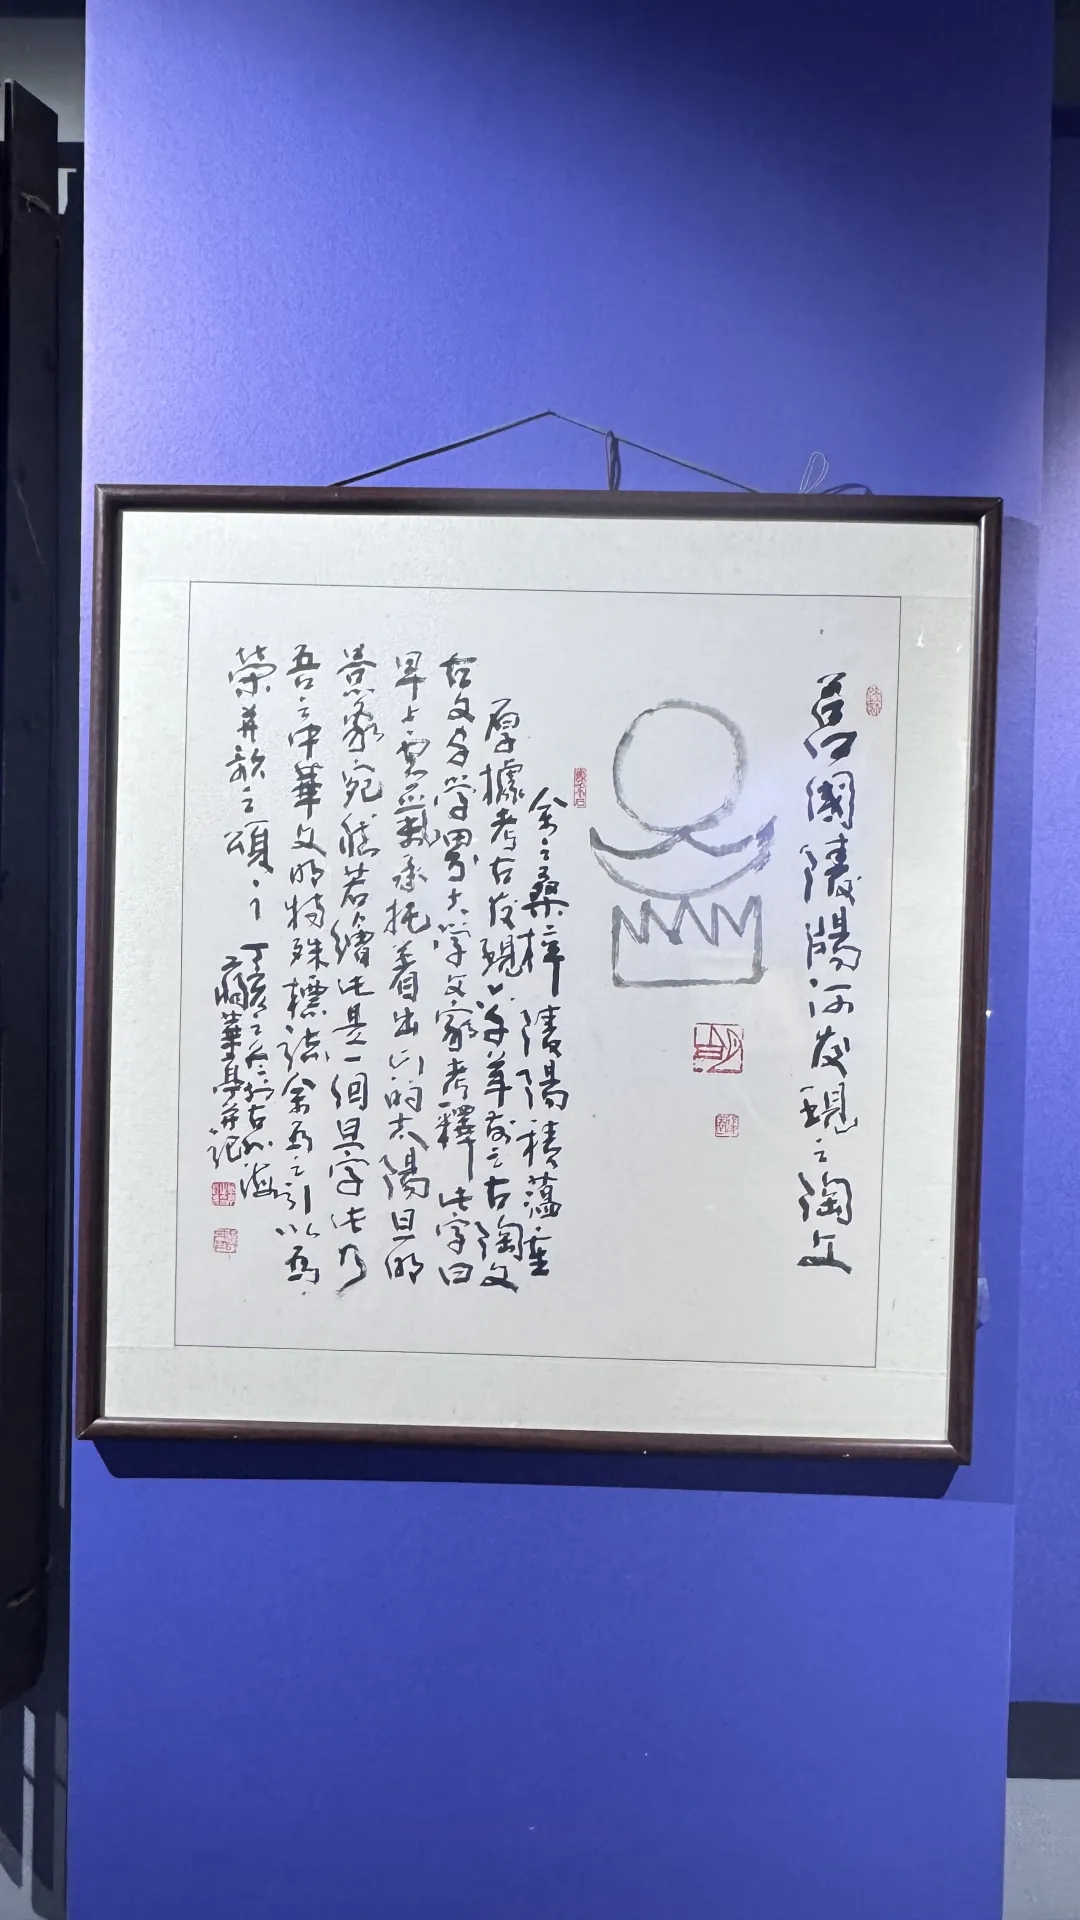 莒國陵陽河发現之陶文
余之桑梓陵陽積蘊豊
厚據考古发現公年前之古陶文
古文字学界大学文家考釋此字曰
早上雲氣承托着出山的太陽旦明
景象宛然若繪此是一個旦字此乃
吾之中華文明特殊標誌余为之引以為
榮并歌之頌之
丁亥
於古州海
蘭華亭并記